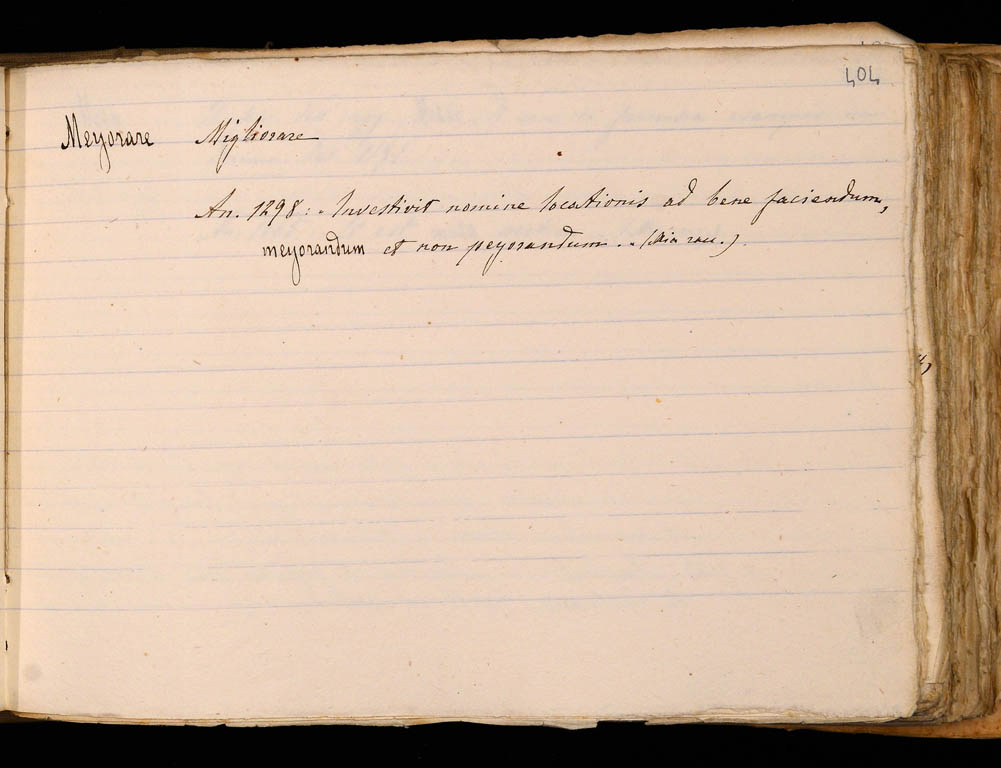 404
Meyorare Migliorare
An. 1298: Investivit nomine locationis ad bene faciendum,
meyorandum et non peyorandum. (Mia racc.)